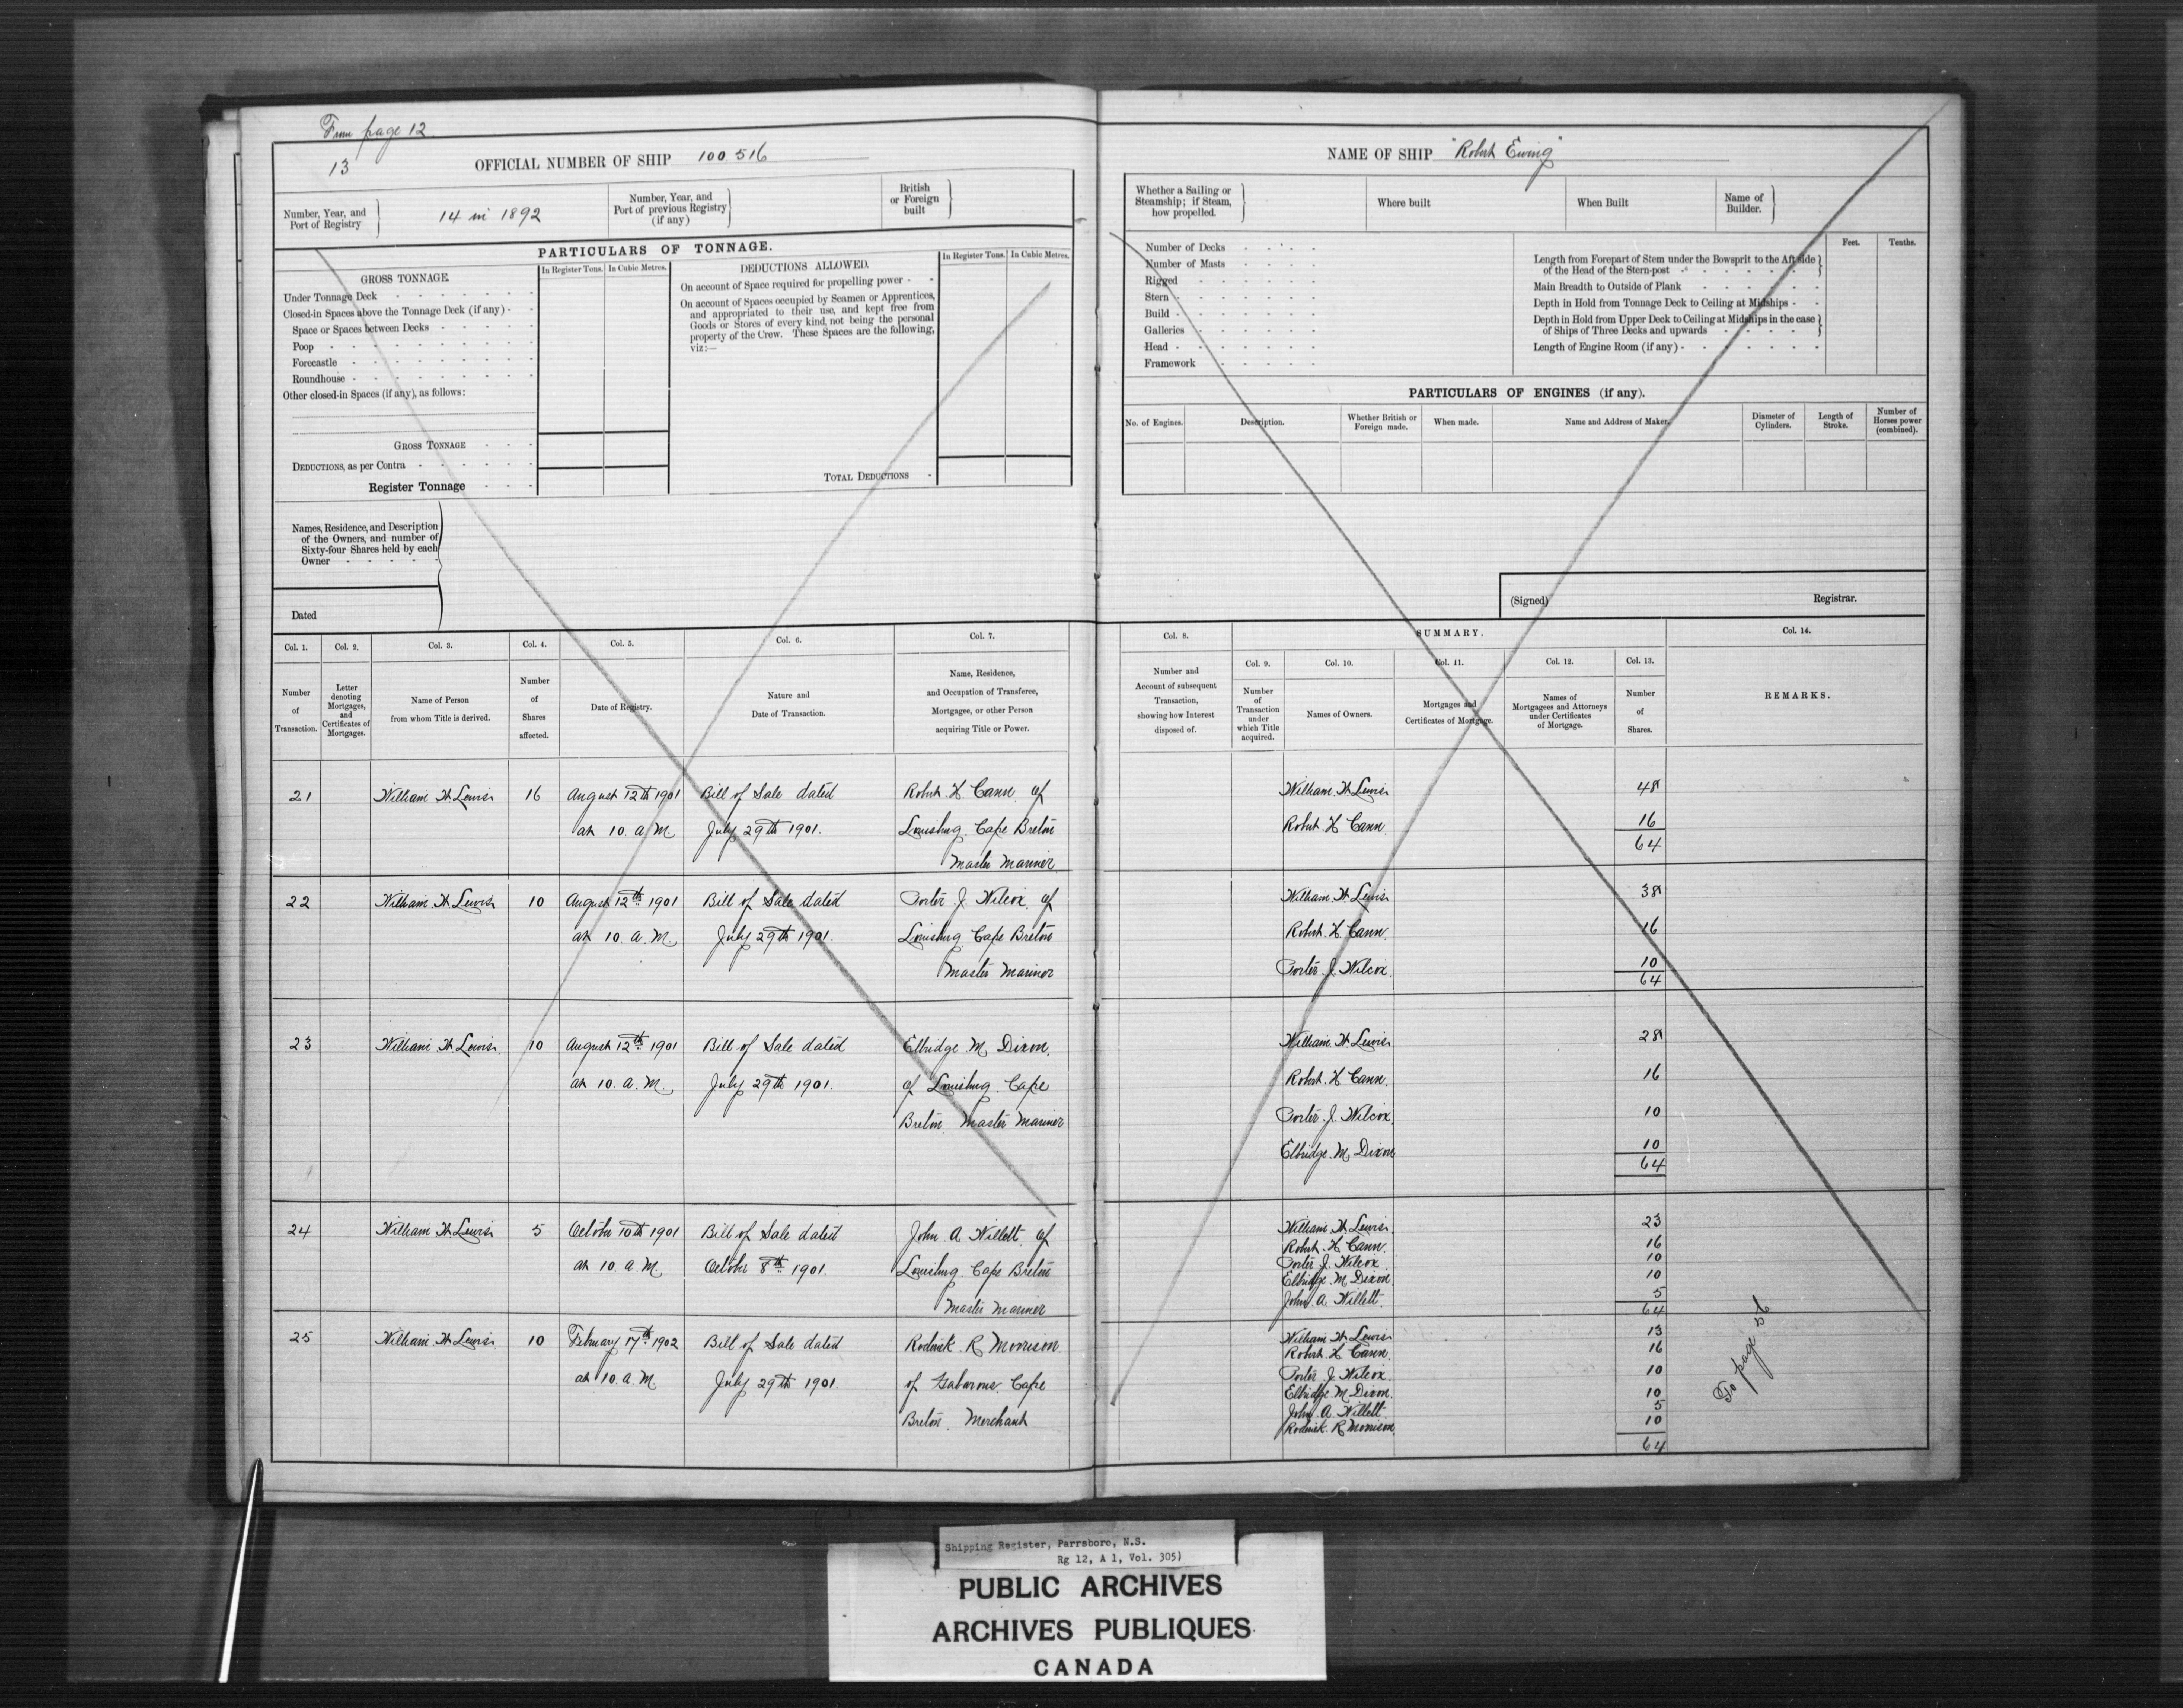 From page 12
13
OFFICIAL NUMBER OF SHIP 100.516
Number, Year, and Port of Registry
14 in 1892
Number, Year, and Port of previous Registry (if any)
British or Foreign built
PARTICULARS OF TONNAGE.
GROSS TONNAGE.
In Register Tons. In Cubic Metres.
DEDUCTIONS ALLOWED.
In Register Tons. In Cubic Metres.
Under Tonnage Deck
Closed-in Spaces above the Tonnage Deck (if any)
Space or Spaces between Decks
Poop
Forecastle
Roundhouse
Other closed-in Spaces (if any), as follows:
GROSS TONNAGE
DEDUCTIONS, as per Contra
Register Tonnage
On account of Space required for propelling power
On account of Spaces occupied by Seamen or Apprentices,
and appropriated to their use, and kept free from
Goods or Stores of every kind, not being the personal
property of the Crew. These Spaces are the following,
viz:—
TOTAL DEDUCTIONS
Names, Residence, and Description
of the Owners, and number of
Sixty-four Shares held by each
Owner
Dated
NAME OF SHIP "Robert Ewing"
Whether a Sailing or
Steamship; if Steam,
how propelled.
Where built
When Built
Name of Builder.
Number of Decks
Number of Masts
Rigged
Stern
Build
Galleries
Head
Framework
Feet. Tenths.
Length from Forepart of Stem under the Bowsprit to the Aft side
of the Head of the Stern-post
Main Breadth to Outside of Plank
Depth in Hold from Tonnage Deck to Ceiling at Midships
Depth in Hold from Upper Deck to Ceiling at Midships in the case
of Ships of Three Decks and upwards
Length of Engine Room (if any)
PARTICULARS OF ENGINES (if any).
No. of Engines.
Description.
Whether British or Foreign made.
When made.
Name and Address of Maker.
Diameter of Cylinders.
Length of Stroke.
Number of Horses power (combined).
(Signed) Registrar.
Col. 1. Col. 2. Col. 3. Col. 4. Col. 5. Col. 6. Col. 7.
Number of Transaction.
Letter denoting Mortgages, and Certificates of Mortgages.
Name of Person from whom Title is derived.
Number of Shares affected.
Date of Registry.
Nature and Date of Transaction.
Name, Residence, and Occupation of Transferee, Mortgagee, or other Person acquiring Title or Power.
Col. 8. SUMMARY. Col. 14.
Col. 9. Col. 10. Col. 11. Col. 12. Col. 13.
Number and Account of subsequent Transaction, showing how Interest disposed of.
Number of Transaction under which Title acquired.
Names of Owners.
Mortgages and Certificates of Mortgage.
Names of Mortgagees and Attorneys under Certificates of Mortgage.
Number of Shares.
REMARKS.
21 William H Lewis 16 August 12th 1901 Bill of Sale dated Robert H Cann of
at 10 a.M. July 29th 1901. Louisburg Cape Breton
Master Mariner
William H Lewis 48
Robert H Cann 16
64
22 William H Lewis 10 August 12th 1901 Bill of Sale dated Porter J. Wilcox of
at 10. a.M. July 29th 1901. Louisburg Cape Breton
Master Mariner
William H Lewis 38
Robert H Cann 16
Porter J. Wilcox 10
64
23 William H Lewis 10 August 12th 1901 Bill of Sale dated Elbridge M Dixon
at 10. a.M. July 29th 1901. of Louisburg Cape
Breton Master Mariner
William H Lewis 28
Robert H Cann 16
Porter J. Wilcox 10
Elbridge M Dixon 10
64
24 William H Lewis 5 October 10th 1901 Bill of Sale dated John A Willett of
at 10 a.M. October 8th 1901. Louisburg Cape Breton
Master Mariner
William H Lewis 23
Robert H Cann 16
Porter J. Wilcox 10
Elbridge M Dixon 10
John A Willett 5
64
25 William H Lewis 10 February 17th 1902 Bill of Sale dated Roderick R Morrison
at 10 a.M. July 29th 1901. of Gabarous Cape
Breton Merchant
William H Lewis 13
Robert H Cann 16
Porter J. Wilcox 10
Elbridge M Dixon 10
John A Willett 5
Roderick R Morrison 10
64
To page
Shipping Register, Parrsboro, N.S.
Rg 12, A 1, Vol. 305)
PUBLIC ARCHIVES
ARCHIVES PUBLIQUES
CANADA